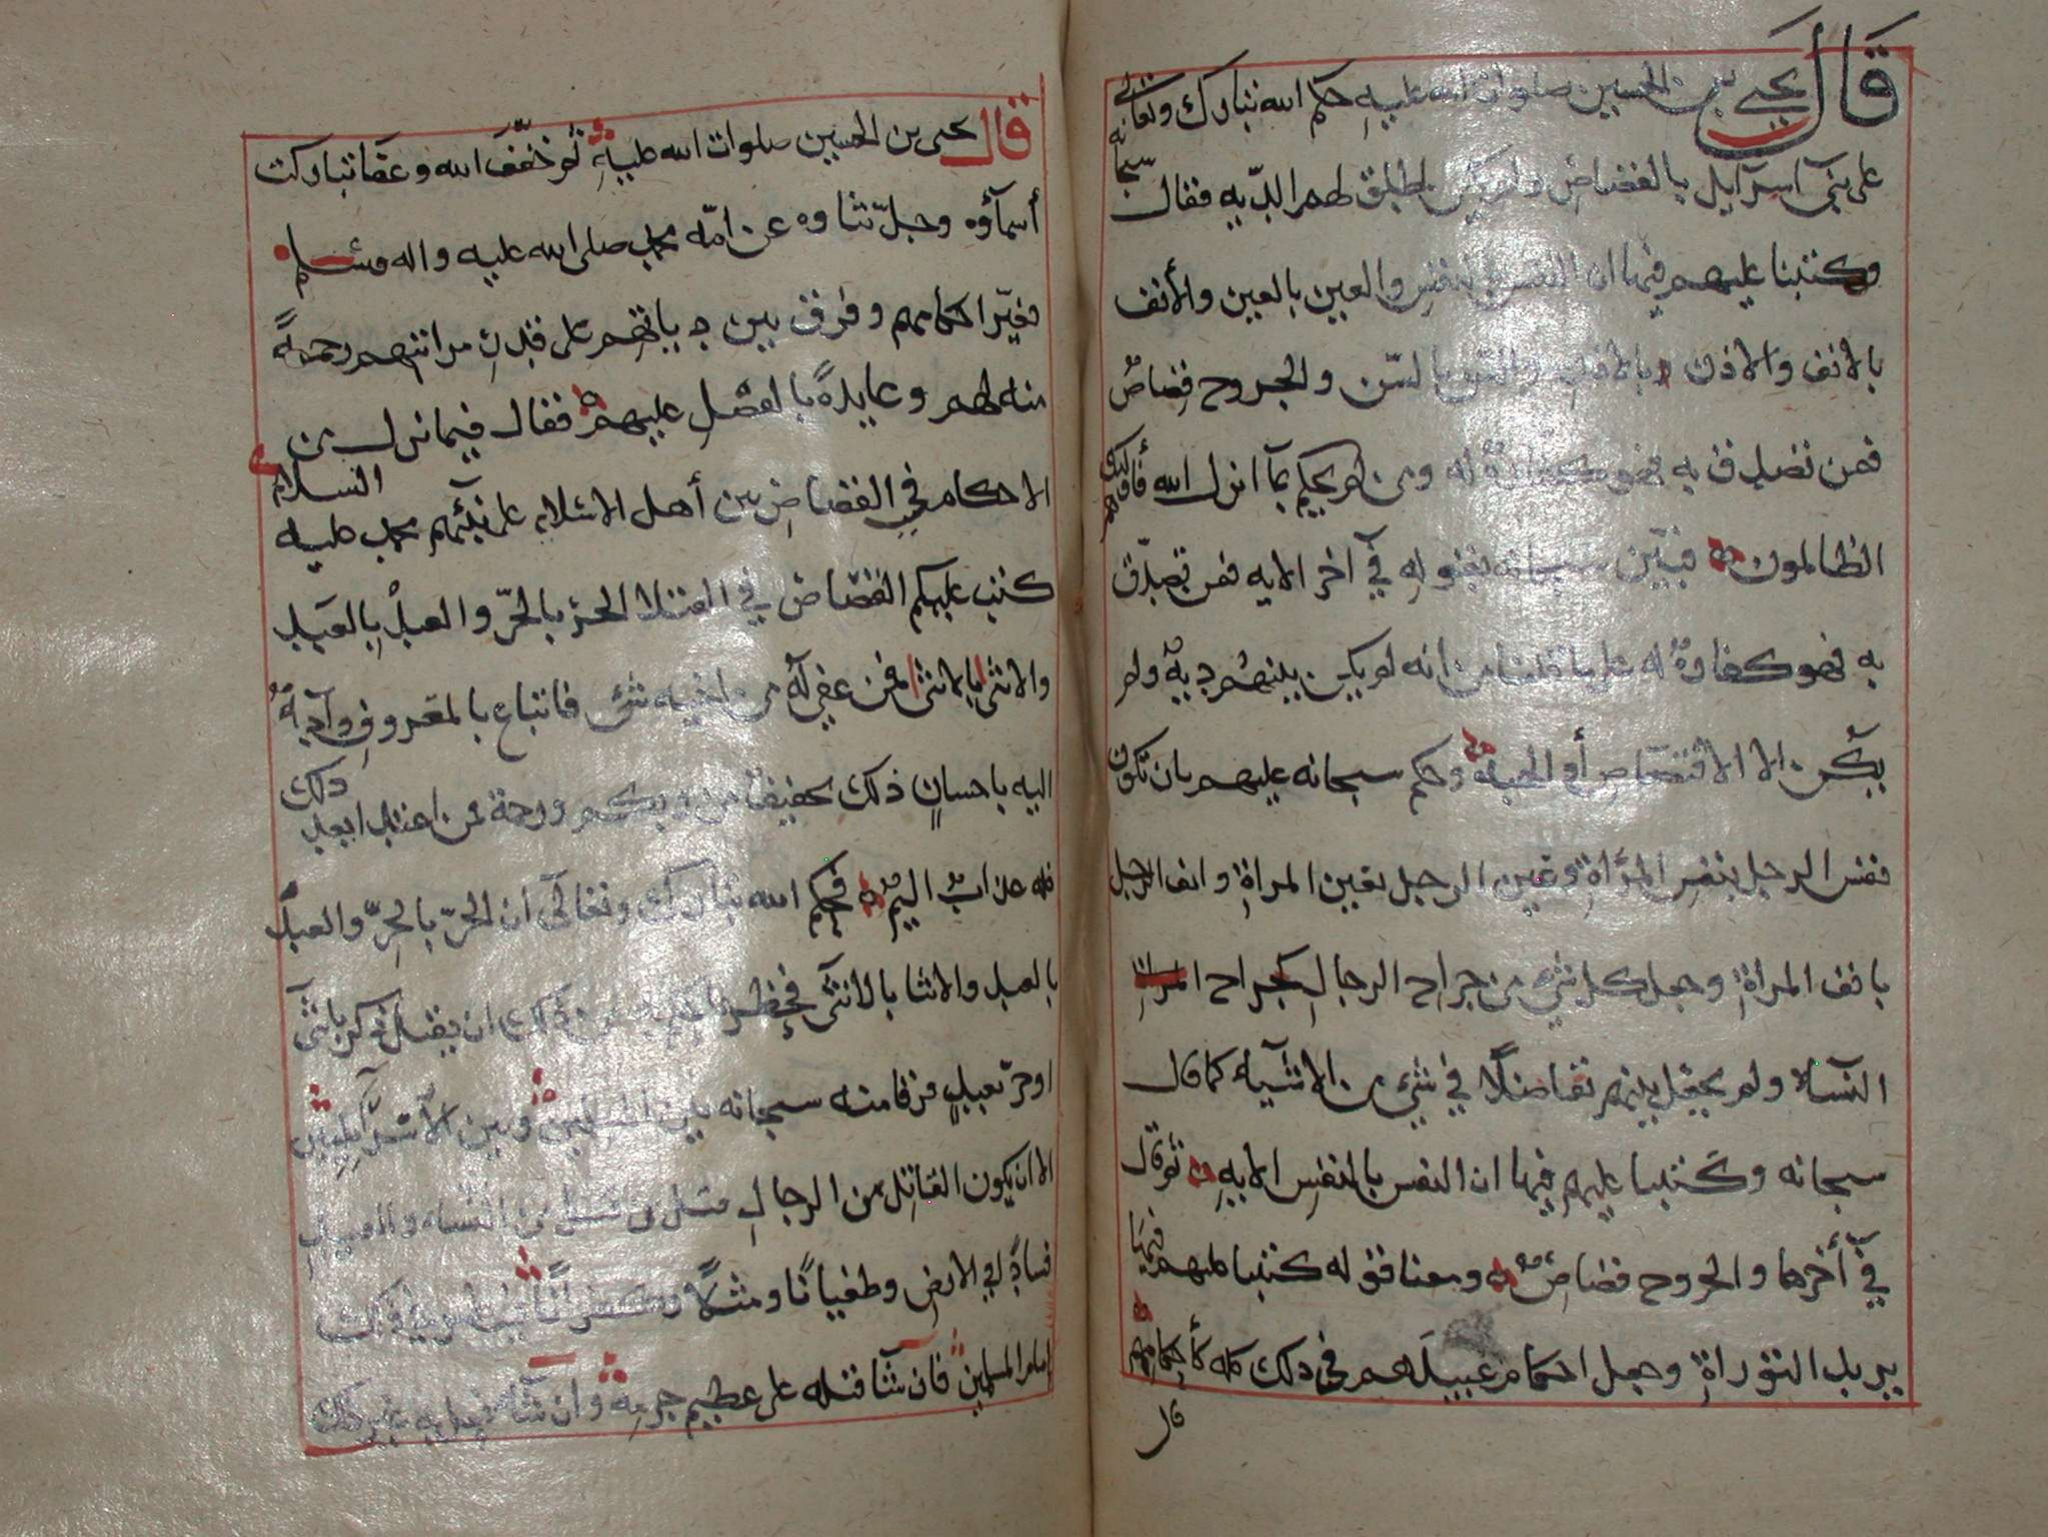 قال يحيى بن الحسين صلوات الله عليه حكم الله تبارك وتعالى
سبحانه
على بني آسرآيل بالقصاص ولم يكن يطلق لهم الديه فقال
وكتبنا عليهم فيها ان النفس بالنفس والعين بالعين والأنف
بالانف والاذن بالاذن والسن بالسّن والجروح قصاصٌ
فمن تصدق به فهو كفارةٌ له ومن لم يحكم بمآ انزل الله فأولئك هم
الظالمون فبيّن سبحانه بقوله في آخر الايه فمن تصدّق
به فهو كفارةٌ له على ما قلنا من انه لم يكن بينهم ديةٌ ولم
يكن الا الاقتصاص أو الهبة وحكم سبحانه عليهم بان تكون
نفس الرجل بنفس المرأة وعين الرجل بعين المراة وانف الرجل
بانف المراة وجعل كل شيء من جراح الرجال كجراح
النسآء ولم يجعل بينهم تفاضلاً في شيء من الاشيآء كما قال
سبحانه وكتبنا عليهم فيها ان النفس بالنفس الايه ثم قال
في آخرها والجروح قصاصٌ ومعنا قوله كتبنا عليهم فيها
يريد التوراة وجعل احكام عبيدهم في ذلك كله كأحكامهم
قال
قال يحيى بن الحسين صلوات الله عليه ثم خفّف الله وعفا تباركت
أسمآؤه وجلّ ثناوه عن امّة محمد صلى الله عليه واله وسلم
فغيّر احكامهم وفرق بين دياتهم على قدر مراتبهم رحمةً
منه لهم وعايدةً بالفضل عليهم فقال فيما نزل من
الاحكام في القصاص بين أهل الاسلام على نبيّهم محمد عليه السلام
كتب عليكم القصاص في القتلا الحرّ بالحرّ والعبدْ بالعبد
والانثى بالانثى فمن عفي له من اخيه شيء فاتباع بالمعروف وآديةٌ
اليه باحسانٍ ذلك تخفيف من ربكم ورحمة فمن اعتدا بعد ذلك
فله عذابٌ اليمٌ فحكم الله تبارك وتعالى ان الحرّ بالحرّ والعبد
بالعبد والانثا بالانثى ذلك ان يقتل ذكر بانثى
او حرّ بعبدٍ فرقا منه سبحانه بين المسلمين وبين الآسرآيليين
الا ان يكون القاتل من الرجال قتل من قتل من النسآء والعبيد
فساداً في الارض وطغيانًا في ذلك
امام المسلمين فان شآ قتله على عظيم جرمه وان شآء